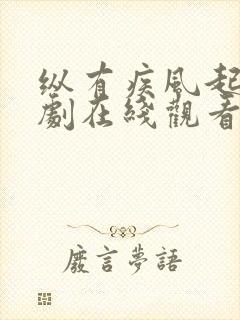 纵有疾风起
劇在綫觀看
廢言夢語